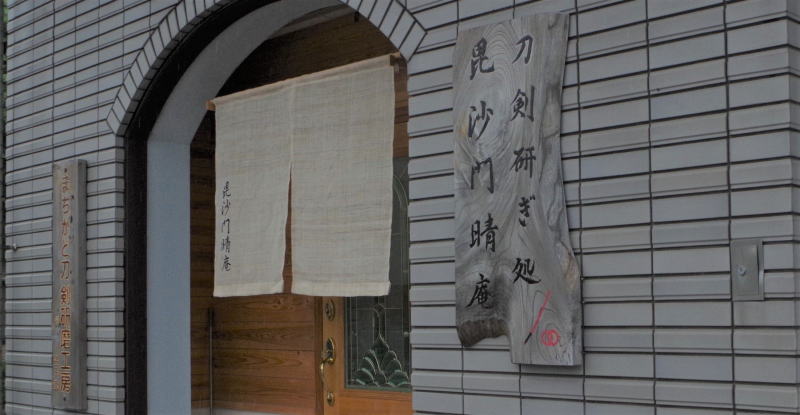 刀剣研ぎ処
毘沙門晴庵
毘沙門晴庵
まちかど刀剣研磨工房